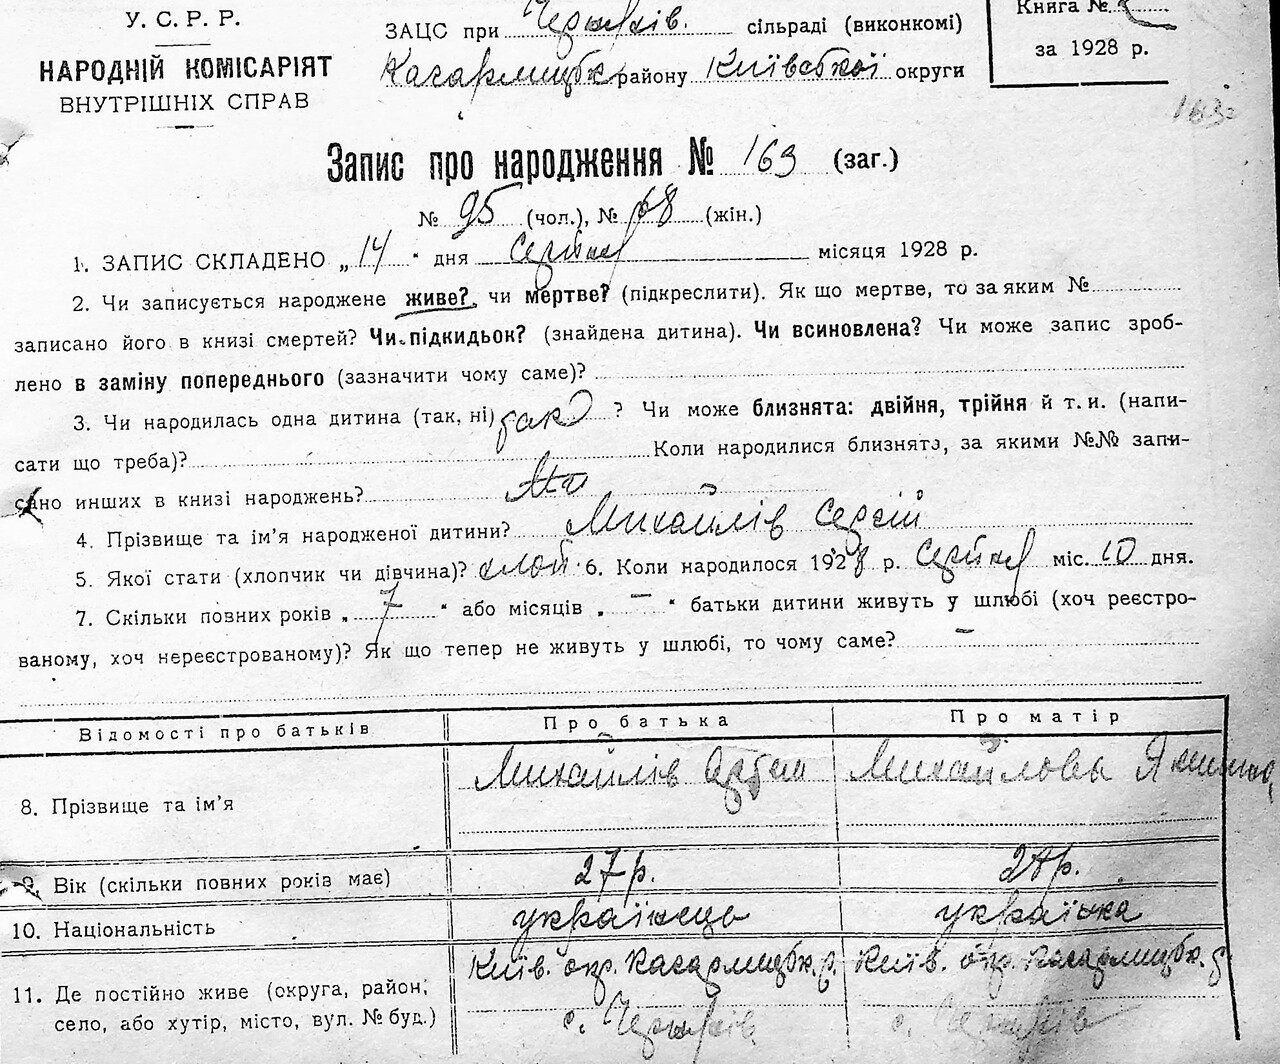 У. С. Р. Р.
НАРОДНІЙ КОМІСАРІЯТ
ВНУТРІШНІХ СПРАВ
ЗАЦС при сільраді (виконкомі)
Кагарлицьк району Київської округи
Книга №
за 1928 р.
163
Запис про народження № 163 (заг.)
№ 95 (чол.), № 68 (жін.)
1. ЗАПИС СКЛАДЕНО „14“ дня Серпня місяця 1928 р.
2. Чи записується народжене живе? чи мертве? (підкреслити). Як що мертве, то за яким №
записано його в книзі смертей? Чи підкидьок? (знайдена дитина). Чи всиновлена? Чи може запис зроб-
лено в заміну попереднього (зазначити чому саме)?
3. Чи народилась одна дитина (так, ні) так ? Чи може близнята: двійня, трійня й т. и. (напи-
сати що треба)? Коли народилися близнята, за якими №№ запи-
сано инших в книзі народжень?
4. Прізвище та ім’я народженої дитини? Михайлів Сергій
5. Якої стати (хлопчик чи дівчина)? хлоп. 6. Коли народилося 1928 р. Серпня міс. 10 дня.
7. Скільки повних років „ 7 “ або місяців „ — “ батьки дитини живуть у шлюбі (хоч реєстро-
ваному, хоч нереєстрованому)? Як що тепер не живуть у шлюбі, то чому саме? —
Відомості про батьків Про батька Про матір
8. Прізвище та ім’я Михайлів Артем Михайлова
9. Вік (скільки повних років має) 27 р. 28 р.
10. Національність українець українка
11. Де постійно живе (округа, район, Київ. окр. Кагарлицьк. р. Київ. окр. Кагарлицьк. р.
село, або хутір, місто, вул. № буд.) с. с.